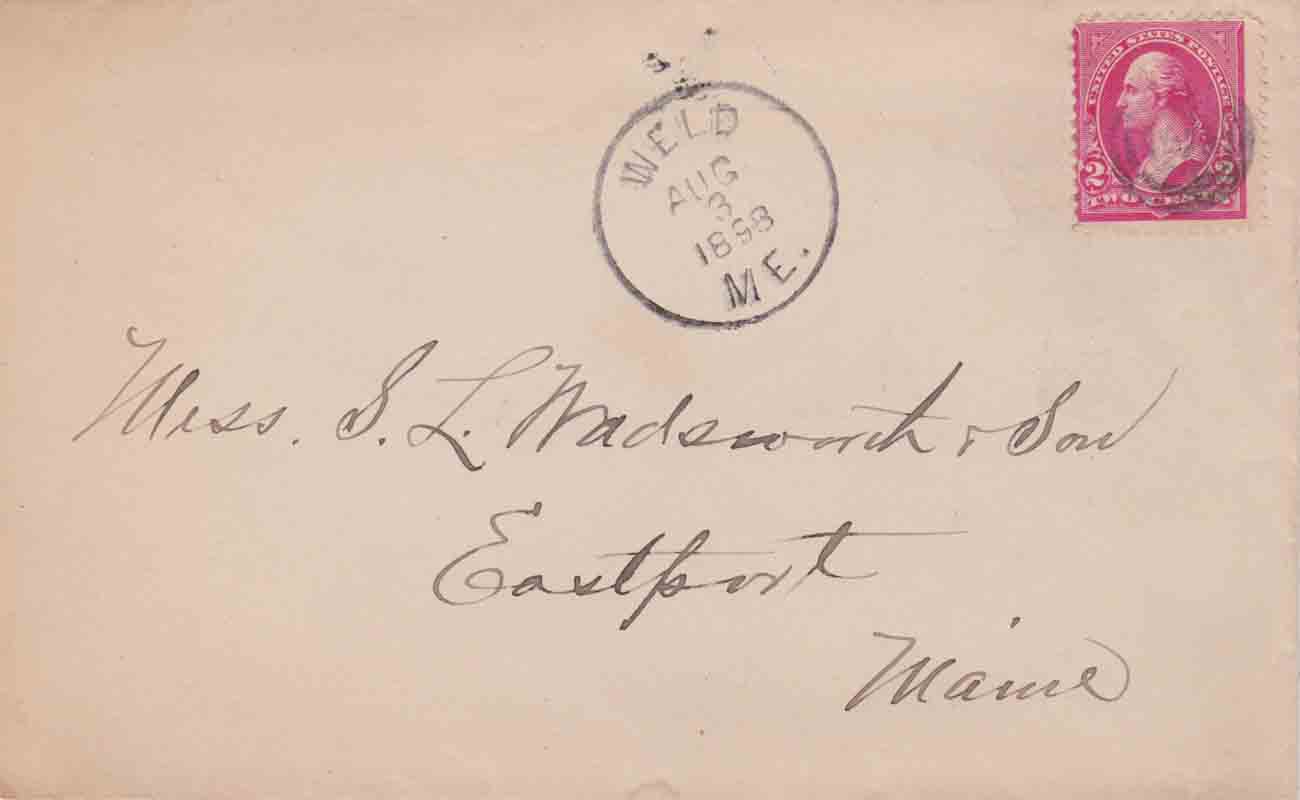 UNITED STATES POSTAGE
2 2
TWO CENTS
WELD
AUG
3
1898
ME.
Mess. S. L. Wadsworth & Son
Eastport
Maine